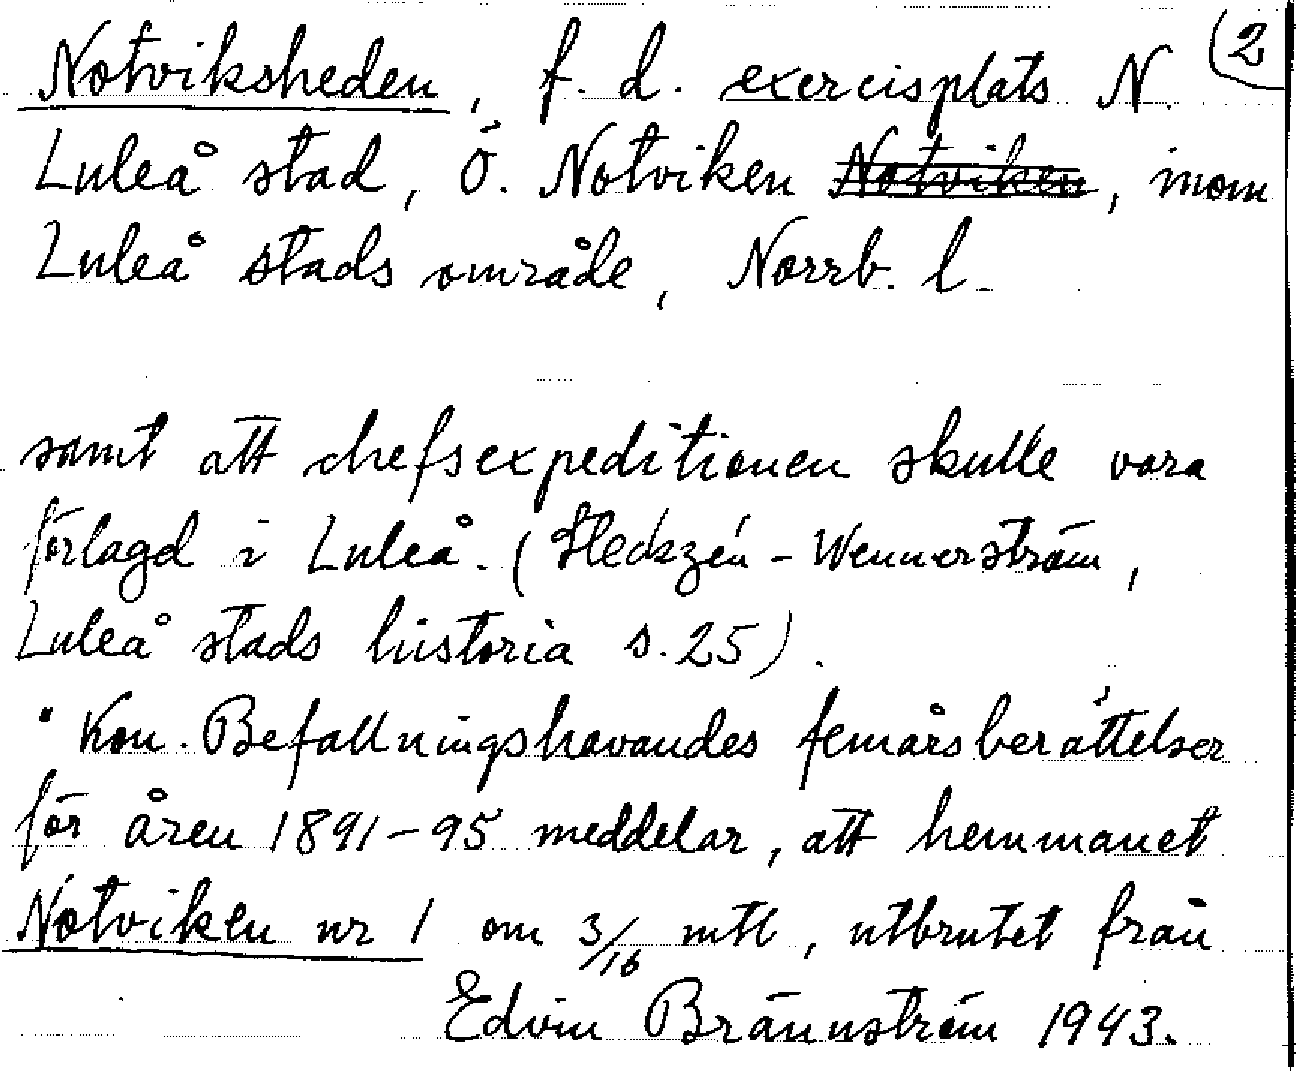 Notviksheden, f. d. exercisplats N. (2
Luleå stad, Ö. Notviken Notviken, inom
Luleå stads område, Norrb. l.
samt att chefsexpeditionen skulle vara
förlagd i Luleå. (Steckzén - Wennerström,
Luleå stads historia s. 25).
" Kon. Befallningshavandes femårsberättelser
för åren 1891-95 meddelar, att hemmanet
Notviken nr 1 om 3/16 mtl, utbrutet från
Edvin Brännström 1943.